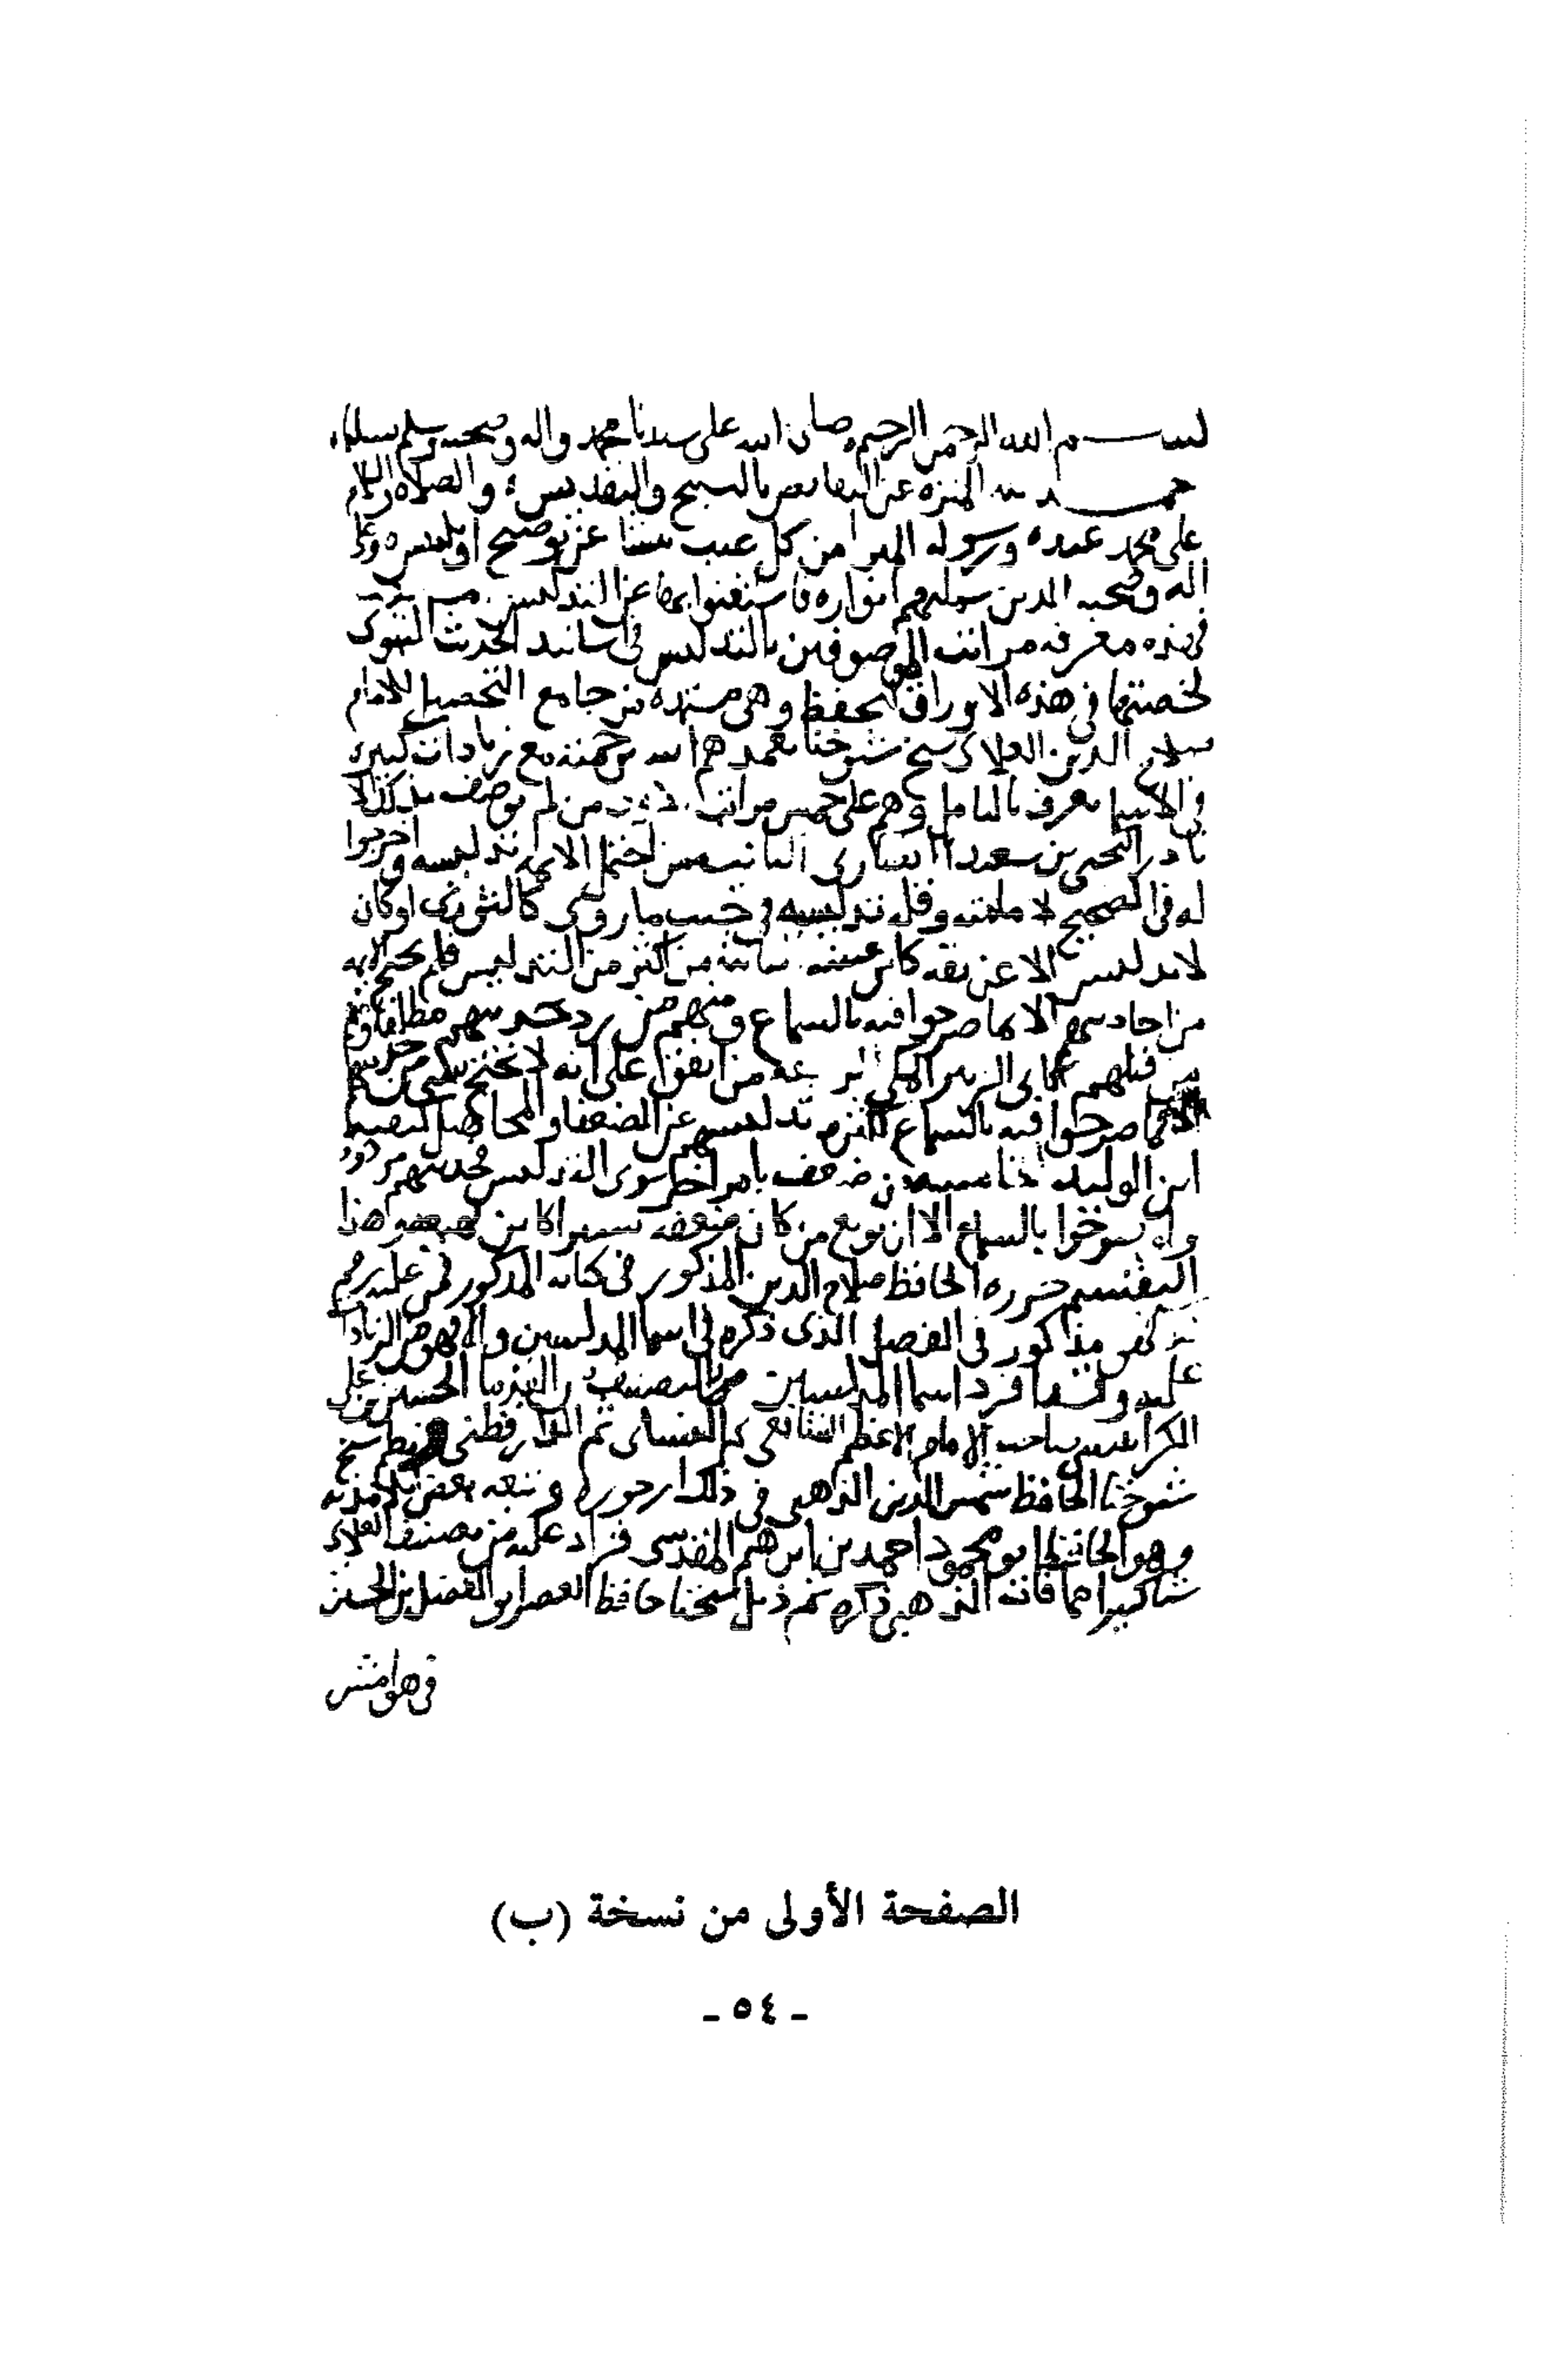 بسم الله الرحمن الرحيم وصلى الله على سيدنا محمد واله وصحبه وسلم تسليما
لله المنزه عن النقايص بالتسبيح والتقديس والصلاة والسلام
على محمد عبده ورسوله المبرا من كل عيب عن توضيح او تلبيس وعلى
اله وصحبه الذين انواره فاستغنوا بها عن التدليس
فهذه معرفة مراتب الموصوفين بالتدليس في اسانيد الحديث النبوى
لخصتها في هذه الاوراق لتحفظ وهى مستمدة من جامع التحصيل للامام
صلاح الدين العلاى شيخ شيوخنا تغمدهم الله برحمته مع زيادات كثيرة
في الاسما تعرف بالتامل وهم على خمس مراتب من لم يوصف بذلك الا
نادرا كيحيى بن سعيد الانصارى الثانيه من احتمل الايمه تدليسه واخرجوا
له في الصحيح لامامته وقلة تدليسه في جنب ما روى كالثورى او كان
لا يدلس الا عن ثقه كابن عيينه من اكثر من التدليس فلم يحتج الايمه
من احاديثهم الا بما صرحوا فيه بالسماع ومنهم من رد حديثهم مطلقا ومنهم
من قبلهم كابى الزبير المكى من اتفق على انه لا يحتج بشى من حديثهم
الا بما صرحوا فيه بالسماع لكثرة تدليسهم عن الضعفا والمجاهيل كبقية
ابن الوليد الخامسه من ضعف بامر اخر سوى التدليس فحديثهم مردود
ولو صرحوا بالسماع الا ان يوثق من كان ضعفه يسيرا كابن لهيعه وهذا
التقسيم حرره الحافظ صلاح الدين المذكور في كتابه المذكور فمن عليه رقم
فهو مذكور في الفصل الذى ذكره في اسما المدلسين والا فهو من الزيادات
عليه وقد افرد اسما المدلسين بالتصنيف من القدما الحسين بن على
الكرابيسى صاحب الامام الاعظم الشافعى ثم النسائى ثم الدارقطنى ونظم شيخ
شيوخنا الحافظ شمس الدين الذهبى في ذلك ارجوزة وتبعه بعض تلامذته
وهو الحافظ ابو محمود احمد بن ابرهيم المقدسى فزاد عليه من تصنيف العلاى
شيا كثيرا مما فات الذهبى ذكره ثم ذيل شيخنا حافظ العصر ابو الفضل بن الحسين
في هوامش
الصفحة الأولى من نسخة (ب)
- ٥٤ -